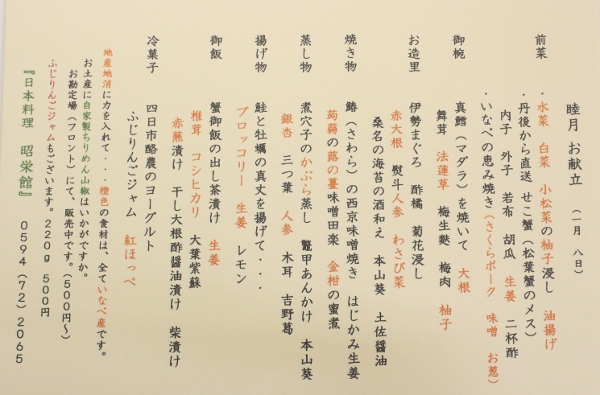 睦月 お献立 （一月 八日）
前菜
・水菜 白菜 小松菜の柚子浸し 油揚げ
・丹後から直送 せこ蟹（松葉蟹のメス）
内子 外子 若布 胡瓜 生姜 二杯酢
・いなべの恵み焼き（さくらポーク 味噌 お葱）
御椀
真鱈（マダラ）を焼いて 大根
舞茸 法蓮草 梅生麩 梅肉 柚子
お造里
伊勢まぐろ 酢橘 菊花浸し
赤大根 熨斗人参 わさび菜
桑名の海苔の酒和え 本山葵 土佐醤油
焼き物
鰆（さわら）の西京味噌焼き はじかみ生姜
蒟蒻の蕗の薹味噌田楽 金柑の蜜煮
蒸し物
煮穴子のかぶら蒸し 鼈甲あんかけ 本山葵
銀杏 三つ葉 人参 木耳 吉野葛
揚げ物
鮭と牡蠣の真丈を揚げて・・・
ブロッコリー 生姜 レモン
御飯
蟹御飯の出し茶漬け 生姜
椎茸 コシヒカリ 大葉紫蘇
赤蕪漬け 干し大根酢醤油漬け 柴漬け
冷菓子
四日市酪農のヨーグルト
ふじりんごジャム 紅ほっぺ
地産地消に力を入れて・・・橙色の食材は、全ていなべ産です。
お土産に自家製ちりめん山椒はいかがですか。
お勘定場（フロント）にて、販売中です。（500円～）
ふじりんごジャムもございます。220g 500円
『日本料理 昭栄館』 0594（72）2065